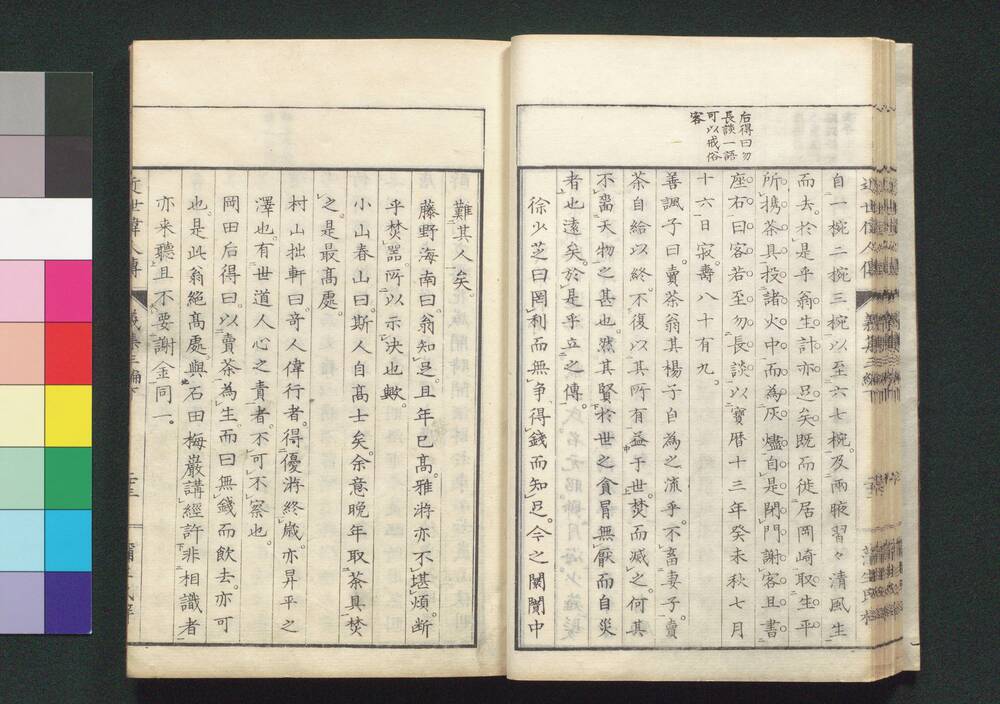 后得曰勿
長談一語
可以戒俗
客
自一椀二椀三椀以至六七椀及兩腋習々清風生
而去。於是乎翁生計亦足矣既而徙居岡崎取生平
所携茶具投諸火中而為灰燼自是閑門謝客且書
座右曰客若至勿長談以寶暦十三年癸未秋七月
十六日寂。壽八十有九。
善諷子曰。賣茶翁其楊子自為之流乎。不畜妻子。賣
茶自給以終。不復以其所有益于世。焚而滅之。何其
不嗇天物之甚也。然其賢於世之貪冒無厭而自災
者也遠矣。於是乎立之傳。
徐少芝曰罔利而無爭得錢而知足。今之闤闠中
難其人矣。
藤野海南曰。翁知足。且年已高。雅游亦不堪煩。斷
乎焚器。所以示決也歟。
小山春山曰。斯人自高士矣。余意晩年取茶具焚
之。是最高處。
村山拙軒曰。奇人偉行者。得優游終歳。亦昇平之
澤也。有世道人心之責者。不可不察也。
岡田后得曰。以賣茶為生。而曰無錢而飲去。亦可
也。是此翁絕高處。與石田梅巖講經許非相識者
亦来聽且不要謝金同一。
近世偉人傳
義集三編